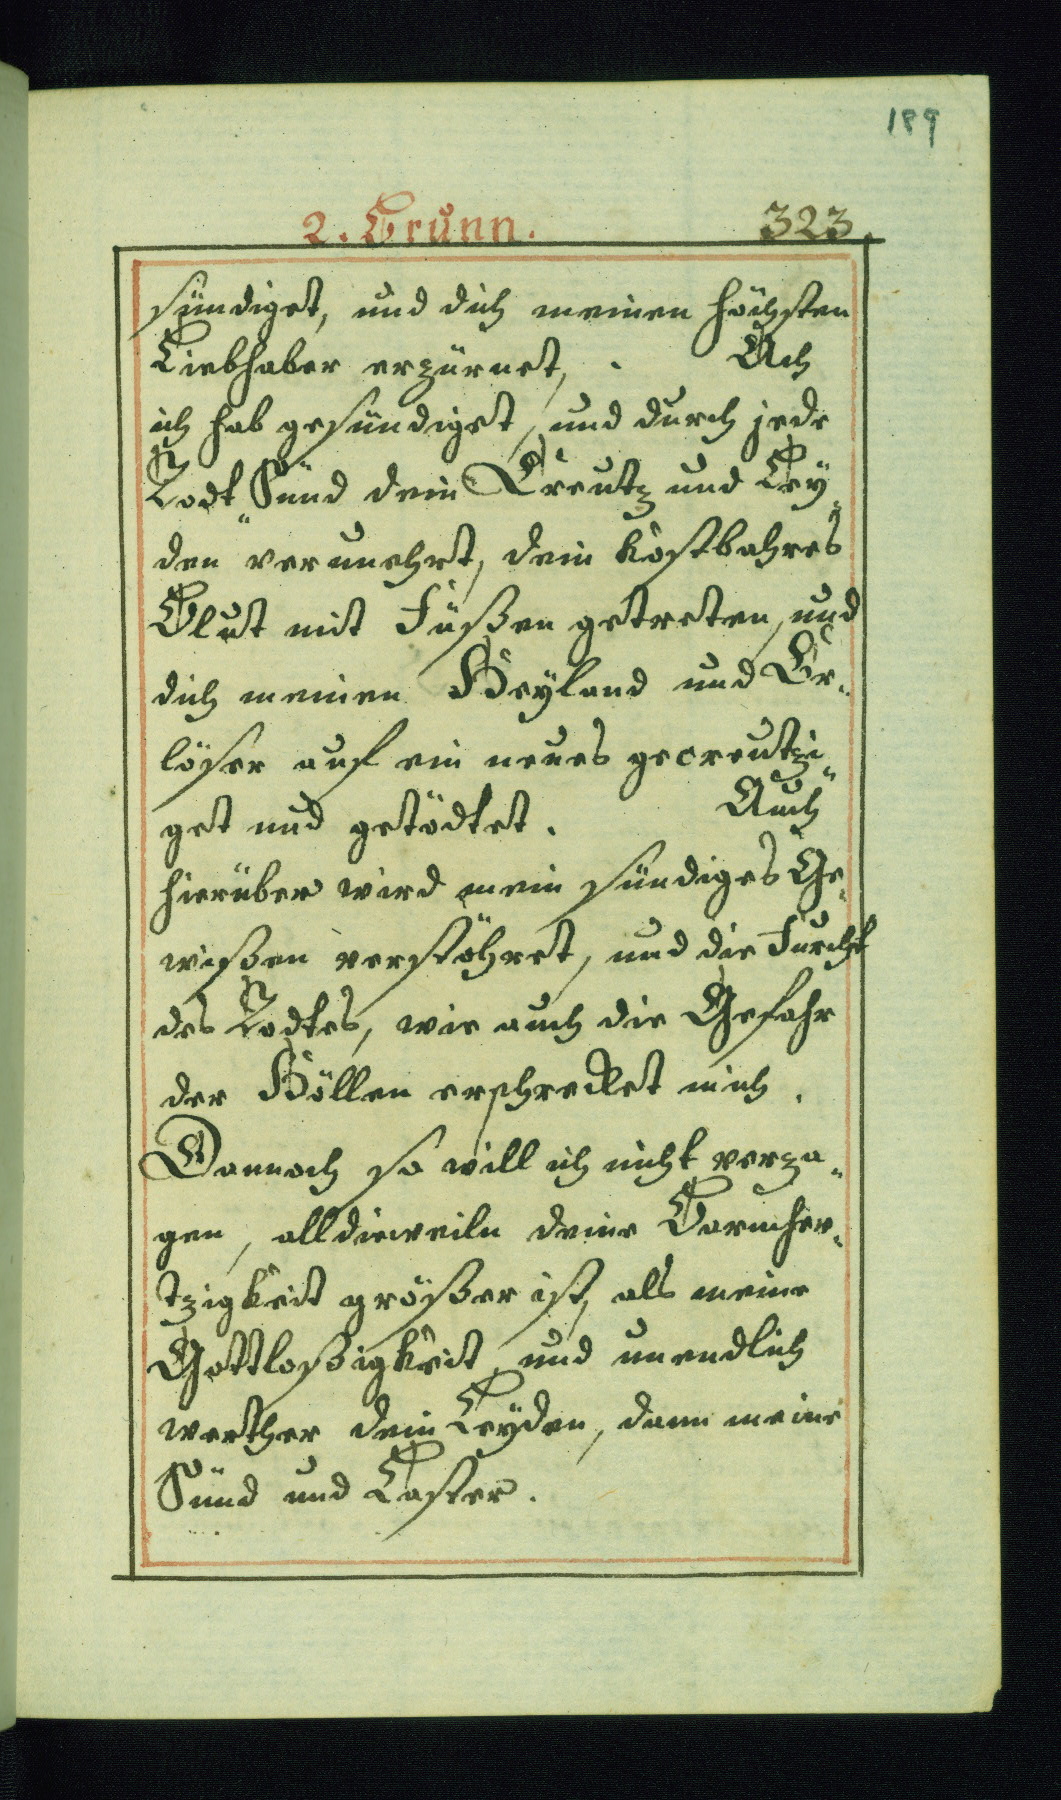 189
2. Brunn. 323.
sündiget, und dich meinen höchsten
Liebhaber erzürnet, . Ach
ich hab gesündiget, und durch jede
Todt„Sünd dein Creutz und Ley„
den verunehrt, dein kostbahres
Blut mit Füßen getreten, und
dich meinen Heyland und Er„
löser auf ein neues gecreutzi„
get und getödtet. Auch
hierüber wird mein sündiges Ge„
wißen verstöhret, und die Furcht
des Todtes, wie auch die Gefahr
der Höllen erschrecket mich.
Dannoch so will ich nicht verza„
gen, alldieweiln deine Barmher„
tzigkeit größer ist, als meine
Gottloßigkeit, und unendlich
werther dein Leyden, dann meine
Sünd und Laster.